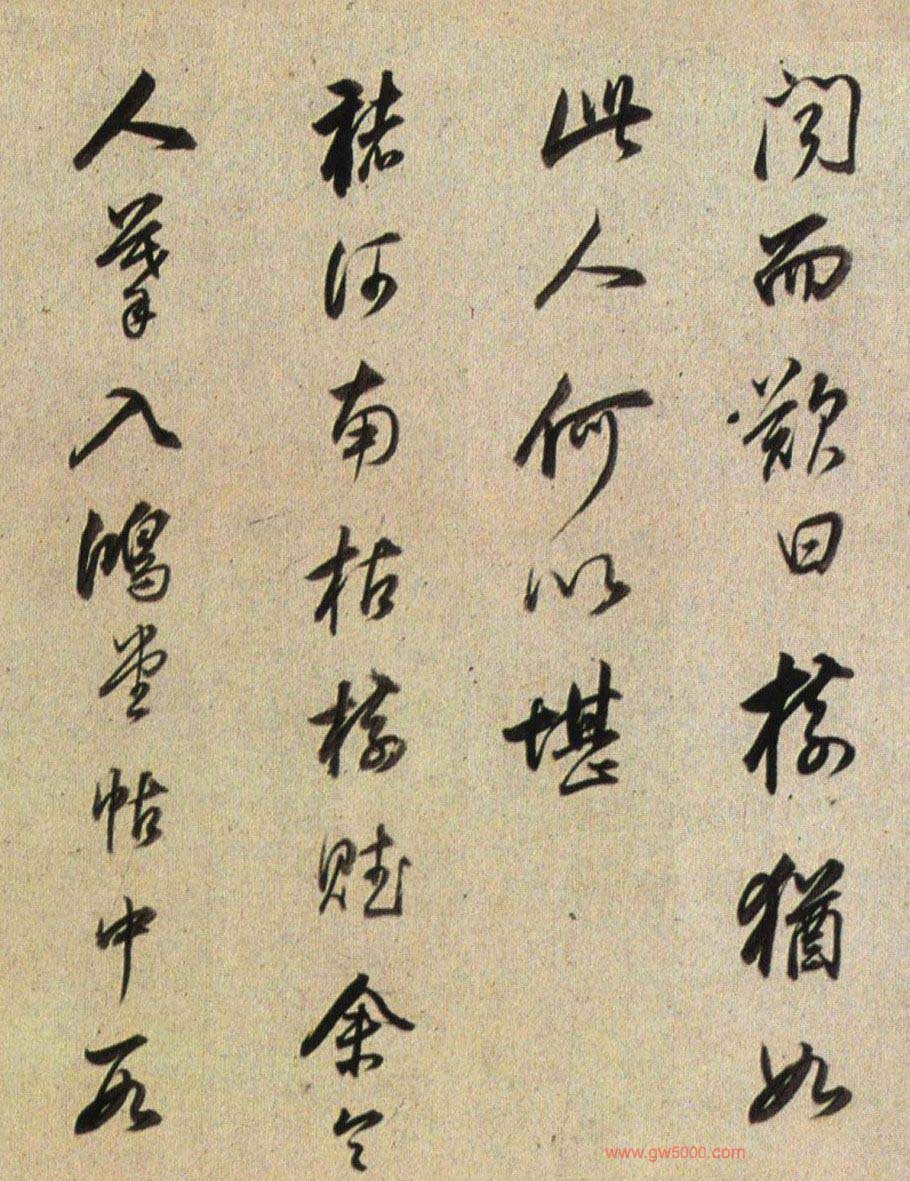 聞而歎曰樹猶如
此人何以堪
褚河南枯樹賦余令
人摹入鴻堂帖中
www.gw5000.com